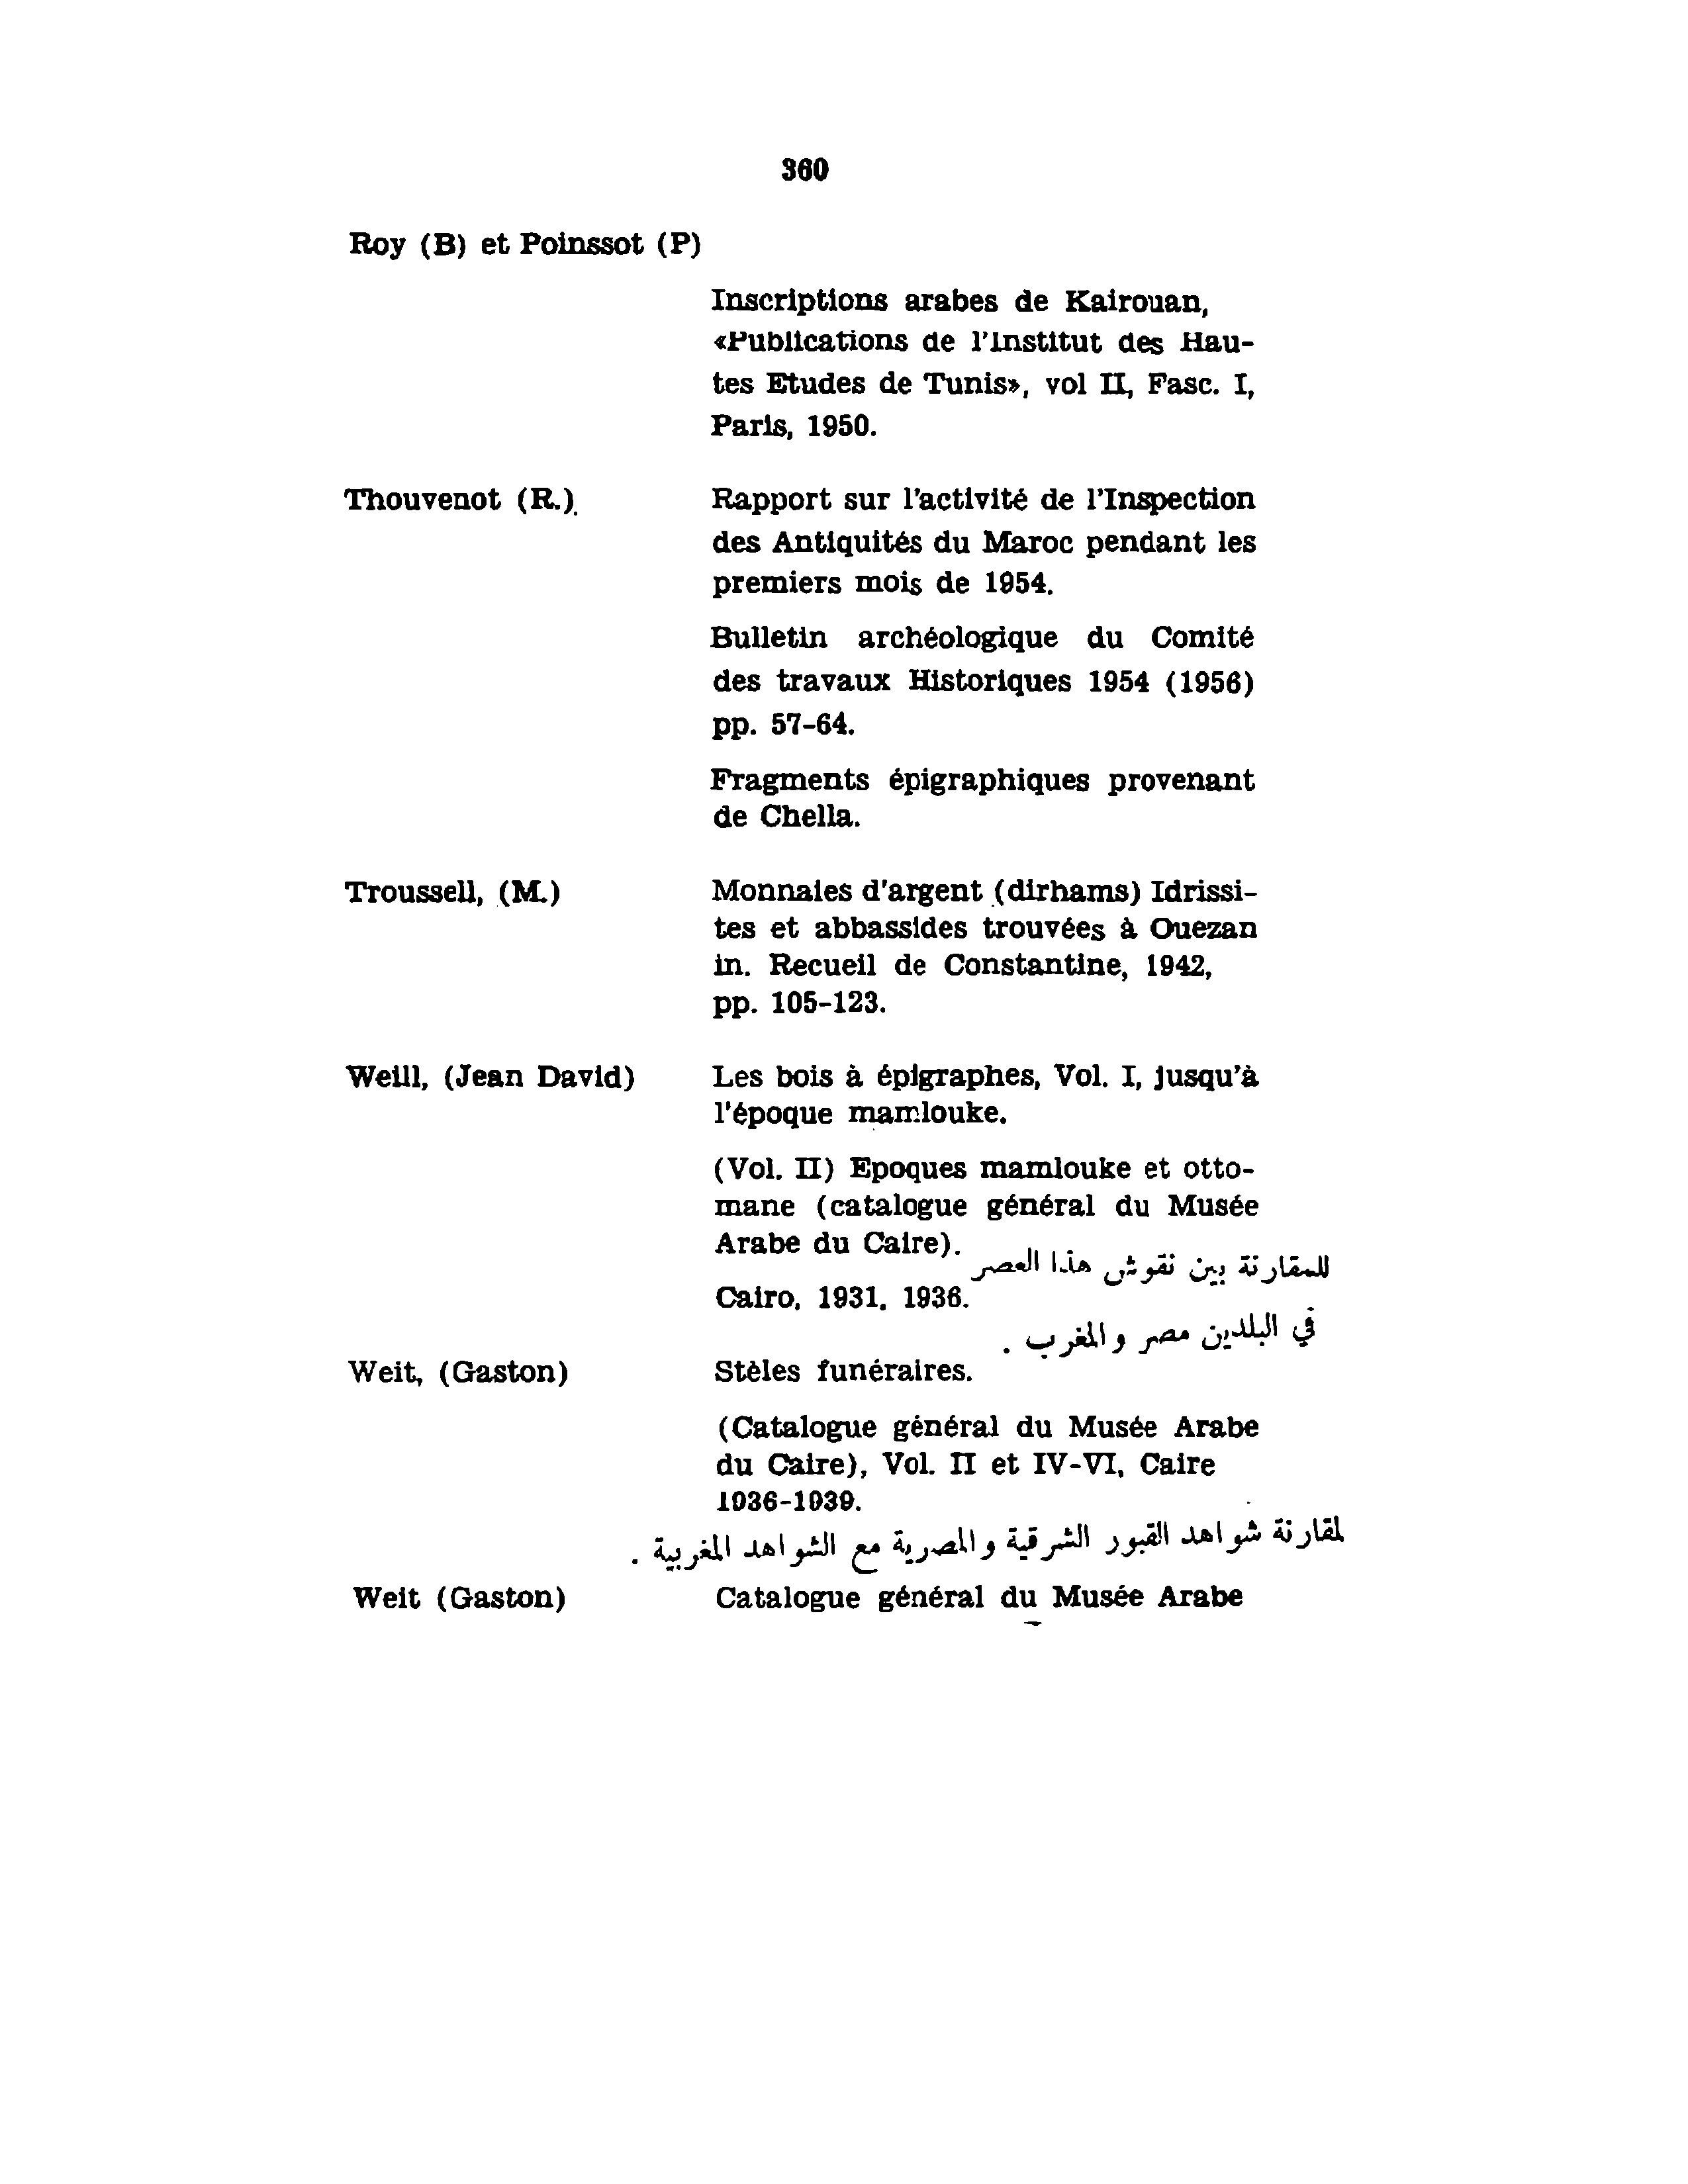 360
Roy (B) et Poinssot (P)
Inscriptions arabes de Kairouan,
«Publications de l'Institut des Hau-
tes Etudes de Tunis», vol II, Fasc. I,
Paris, 1950.
Thouvenot (R.). Rapport sur l'activité de l'Inspection
des Antiquités du Maroc pendant les
premiers mois de 1954.
Bulletin archéologique du Comité
des travaux Historiques 1954 (1956)
pp. 57-64.
Fragments épigraphiques provenant
de Chella.
Troussell, (M.) Monnaies d'argent (dirhams) Idrissi-
tes et abbassides trouvées à Ouezan
in. Recueil de Constantine, 1942,
pp. 105-123.
Weill, (Jean David) Les bois à épigraphes, Vol. I, jusqu'à
l'époque mamlouke.
(Vol. II) Epoques mamlouke et otto-
mane (catalogue général du Musée
Arabe du Caire).
للمقارنة بين نقوش هذا العصر
Cairo, 1931, 1936.
في البلدين مصر والمغرب .
Weit, (Gaston) Stèles funéraires.
(Catalogue général du Musée Arabe
du Caire), Vol. II et IV-VI, Caire
1936-1939.
لمقارنة شواهد القبور الشرقية والمصرية مع الشواهد المغربية .
Weit (Gaston) Catalogue général du Musée Arabe